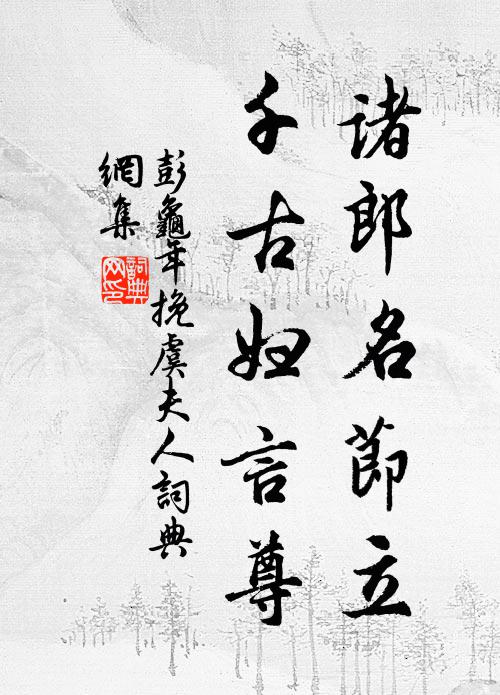 诸郎名節立
千古妇言尊
彭龜年挽虞夫人詞典
網集
詞典
网印